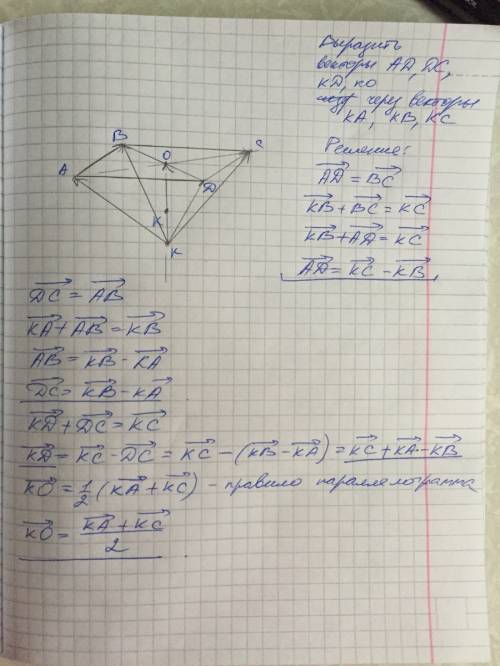 Выразить
векторы AD, DC,
KD, KO
через векторы
KA, KB, KC
Решение:
AD = BC
KB + BC = KC
KB + AD = KC
AD = KC - KB
B
O
C
A
D
K
K
DC = AB
KA + AB = KB
AB = KB - KA
DC = KB - KA
KD + DC = KC
KD = KC - DC = KC - (KB - KA) = KC + KA - KB
KO = 1/2 (KA + KC) - правило параллелограмма
KO = KA + KC
2